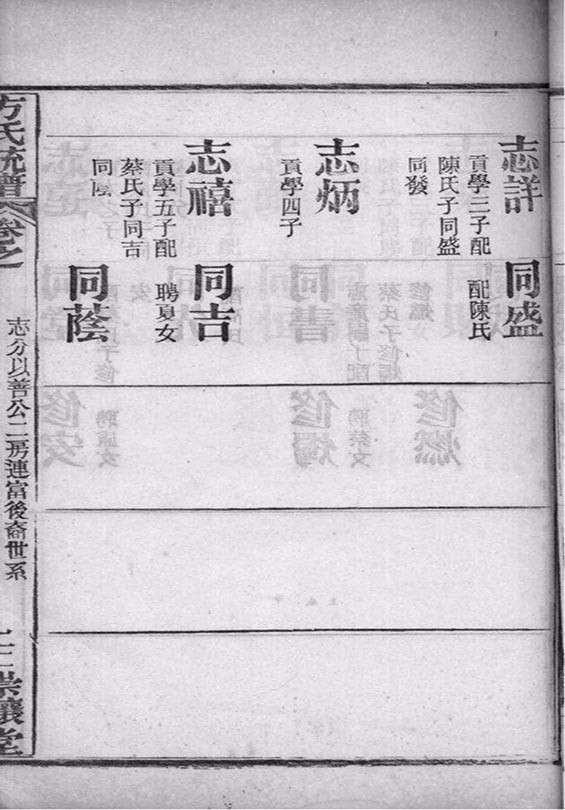 志詳
貢學三子配
陳氏子同盛
同發
同盛
配陳氏
志炳
貢學四子
志禧
貢學五子配
蔡氏子同吉
同蔭
同吉
聘夏女
同蔭
方氏統譜
卷之
志分以善公二房連富後裔世系
崇讓堂